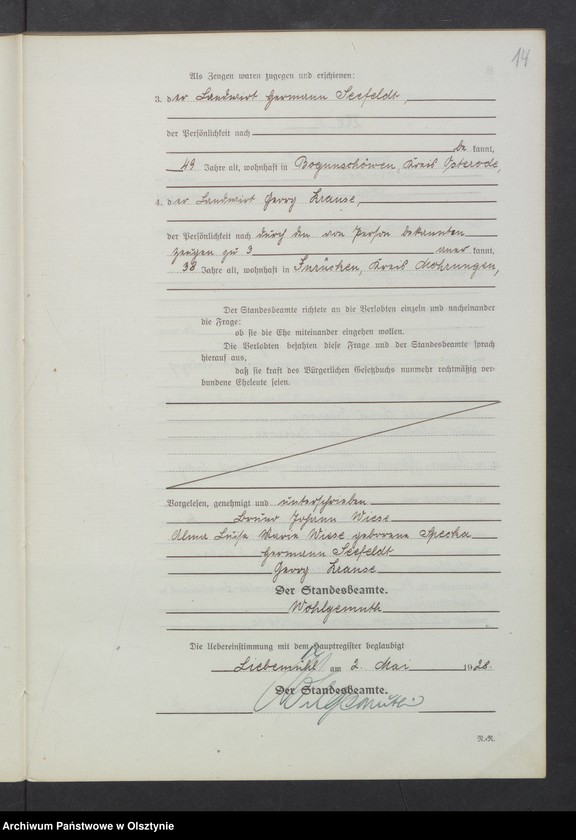 14
Als Zeugen waren zugegen und erschienen:
3. der Landwirt Hermann Seefeldt,
der Persönlichkeit nach
be kannt,
49 Jahre alt, wohnhaft in Bogunschöwen, Kreis Osterode,
4. der Landwirt Georg Krause,
der Persönlichkeit nach durch den von Person bekannten
Zeugen zu 3 aner kannt,
38 Jahre alt, wohnhaft in Kreis Mohrungen,
Der Standesbeamte richtete an die Verlobten einzeln und nacheinander
die Frage:
ob sie die Ehe miteinander eingehen wollen.
Die Verlobten bejahten diese Frage und der Standesbeamte sprach
hierauf aus,
daß sie kraft des Bürgerlichen Gesetzbuchs nunmehr rechtmäßig ver-
bundene Eheleute seien.
Vorgelesen, genehmigt und unterschrieben
Bruno Johann Wiese
Alma Luise Maria Wiese geborene
Hermann Seefeldt
Georg Krause
Der Standesbeamte.
Wohlgemuth
Die Uebereinstimmung mit dem Hauptregister beglaubigt
Liebemühl am 2. Mai 1928.
Der Standesbeamte.
Wohlgemuth
R.-R.
Archiwum Państwowe w Olsztynie